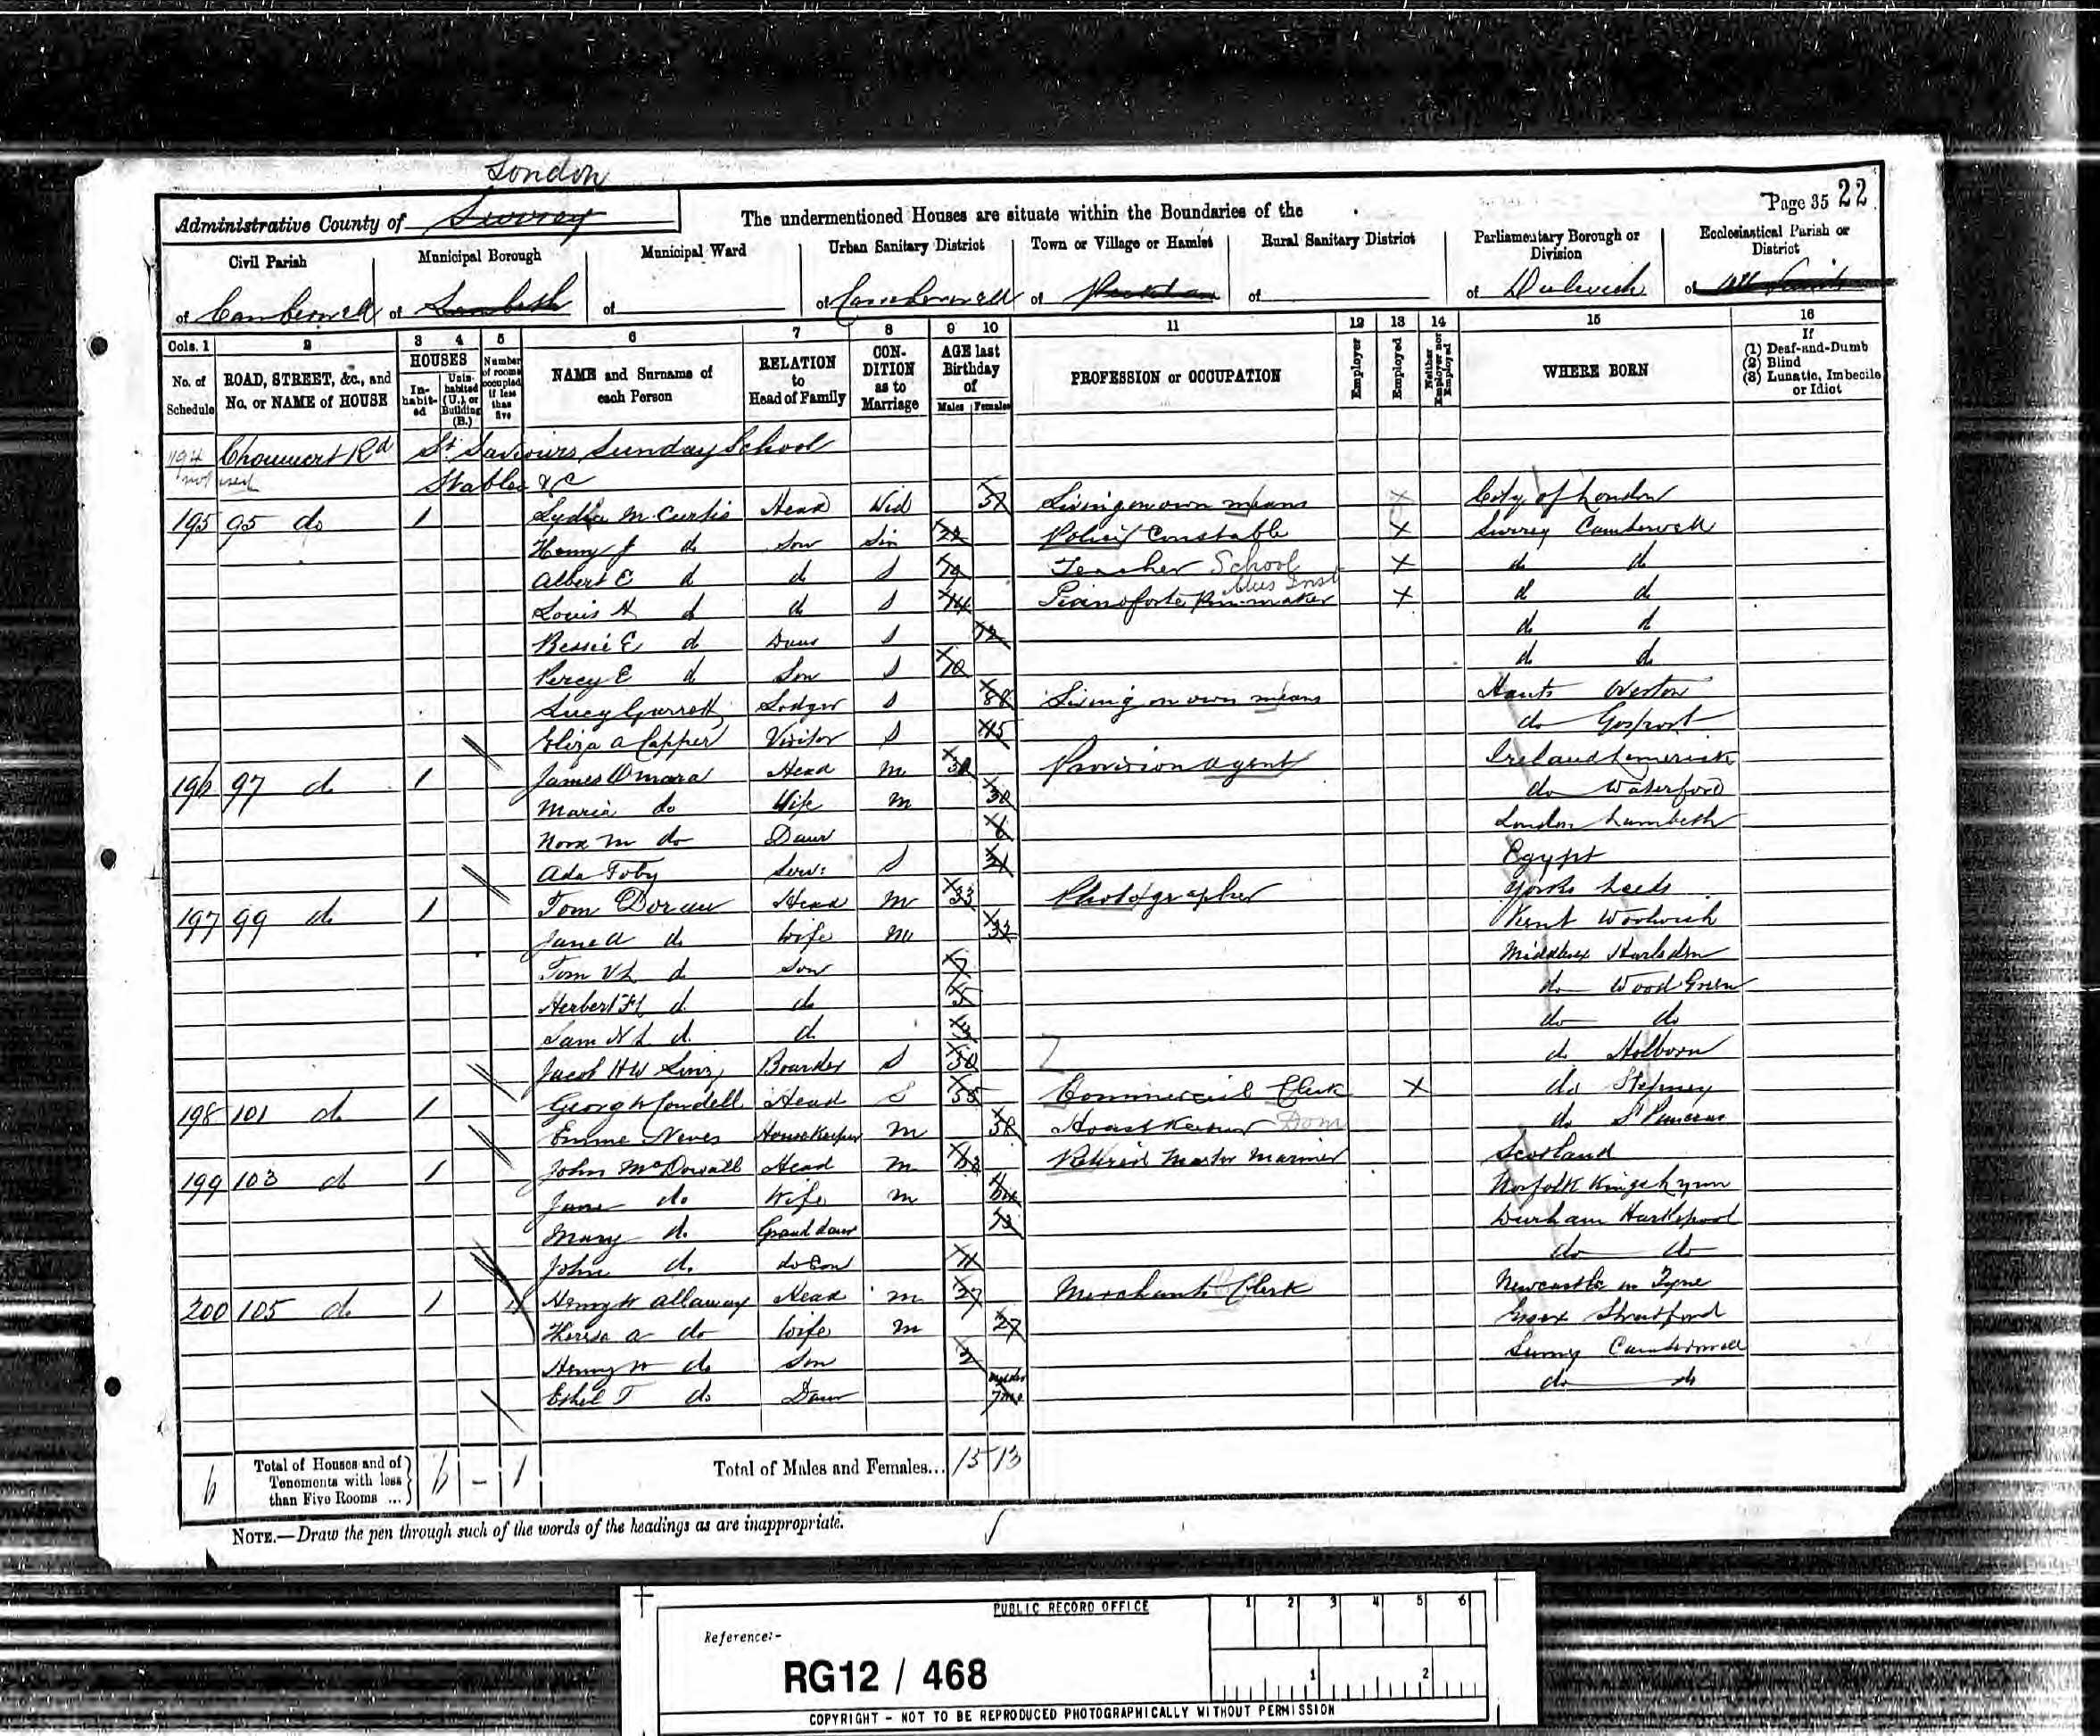 London
Administrative County of Surrey
The undermentioned Houses are situate within the Boundaries of the
Page 35 22
Civil Parish
of Camberwell
Municipal Borough
of Lambeth
Municipal Ward
of
Urban Sanitary District
of Camberwell
Town or Village or Hamlet
of Peckham
Rural Sanitary District
of
Parliamentary Borough or Division
of Dulwich
Ecclesiastical Parish or District
of All Saints
Cols. 1 2 3 4 5 6 7 8 9 10 11 12 13 14 15 16
No. of Schedule
ROAD, STREET, &c., and No. or NAME of HOUSE
HOUSES
In-habit-ed
Unin-habited (U.), or Building (B.)
Number of rooms occupied if less than five
NAME and Surname of each Person
RELATION to Head of Family
CON-DITION as to Marriage
AGE last Birthday of
Males Females
PROFESSION or OCCUPATION
Employer
Employed
Neither Employer nor Employed
WHERE BORN
If
(1) Deaf-and-Dumb
(2) Blind
(3) Lunatic, Imbecile or Idiot
194 Choumert Rd St Saviours Sunday School
not used Stables &c
195 95 do 1 Lydia M Curtis Head Wid 57 Living on own means X City of London
Henry J do Son Sin 22 Police Constable X Surrey Camberwell
Albert E d d S 19 Teacher School X d d
Louis H d d S 14 Pianoforte Pin-maker Mus Inst X d d
Bessie E d Daur S 12 d d
Percy E d Son S 10 d d
Lucy Garrett Lodger S 88 Living on own means Hants Weston
Eliza A Capper Visitor S 45 do Gosport
196 97 do 1 James Omara Head M 32 Provision Agent Ireland Limerick
Maria do Wife M 30 do Waterford
Nora M do Daur 6 London Lambeth
Ada Foby Serv: S 21 Egypt
197 99 do 1 Tom Doran Head M 33 Photographer Yorks Leeds
Jane A d Wife M 32 Kent Woolwich
Tom V L d Son 7 Middlesex Harlesdon
Herbert H d do 5 do Wood Green
Sam N L d d. 3 do do
Jacob H W Boarder S 50 d. Holborn
198 101 do 1 Georg W Condell Head S 55 Commercial Clerk X do Stepney
Emma Neves Housekeeper M 38 Housekeeper Dom do St Pancras
199 103 d 1 John McDowall Head M Retired Master Mariner Scotland
Jane do Wife M Norfolk Kings Lynn
Mary d. Grand daur 13 Durham Hartlepool
John d. do Son 11 do do
200 105 d. 1 Henry W Allaway Head M 27 Merchants Clerk Newcastle on Tyne
Theresa A do Wife M 27 Essex Stratford
Henry W do Son 2 Surrey Camberwell
Ethel T do Daur 7 mo do do
6 Total of Houses and of Tenements with less than Five Rooms ... 6 - 1 Total of Males and Females... 15 13
NOTE.—Draw the pen through such of the words of the headings as are inappropriate.
PUBLIC RECORD OFFICE
1 2 3 4 5 6
Reference:-
RG12 / 468
1 2
COPYRIGHT - NOT TO BE REPRODUCED PHOTOGRAPHICALLY WITHOUT PERMISSION